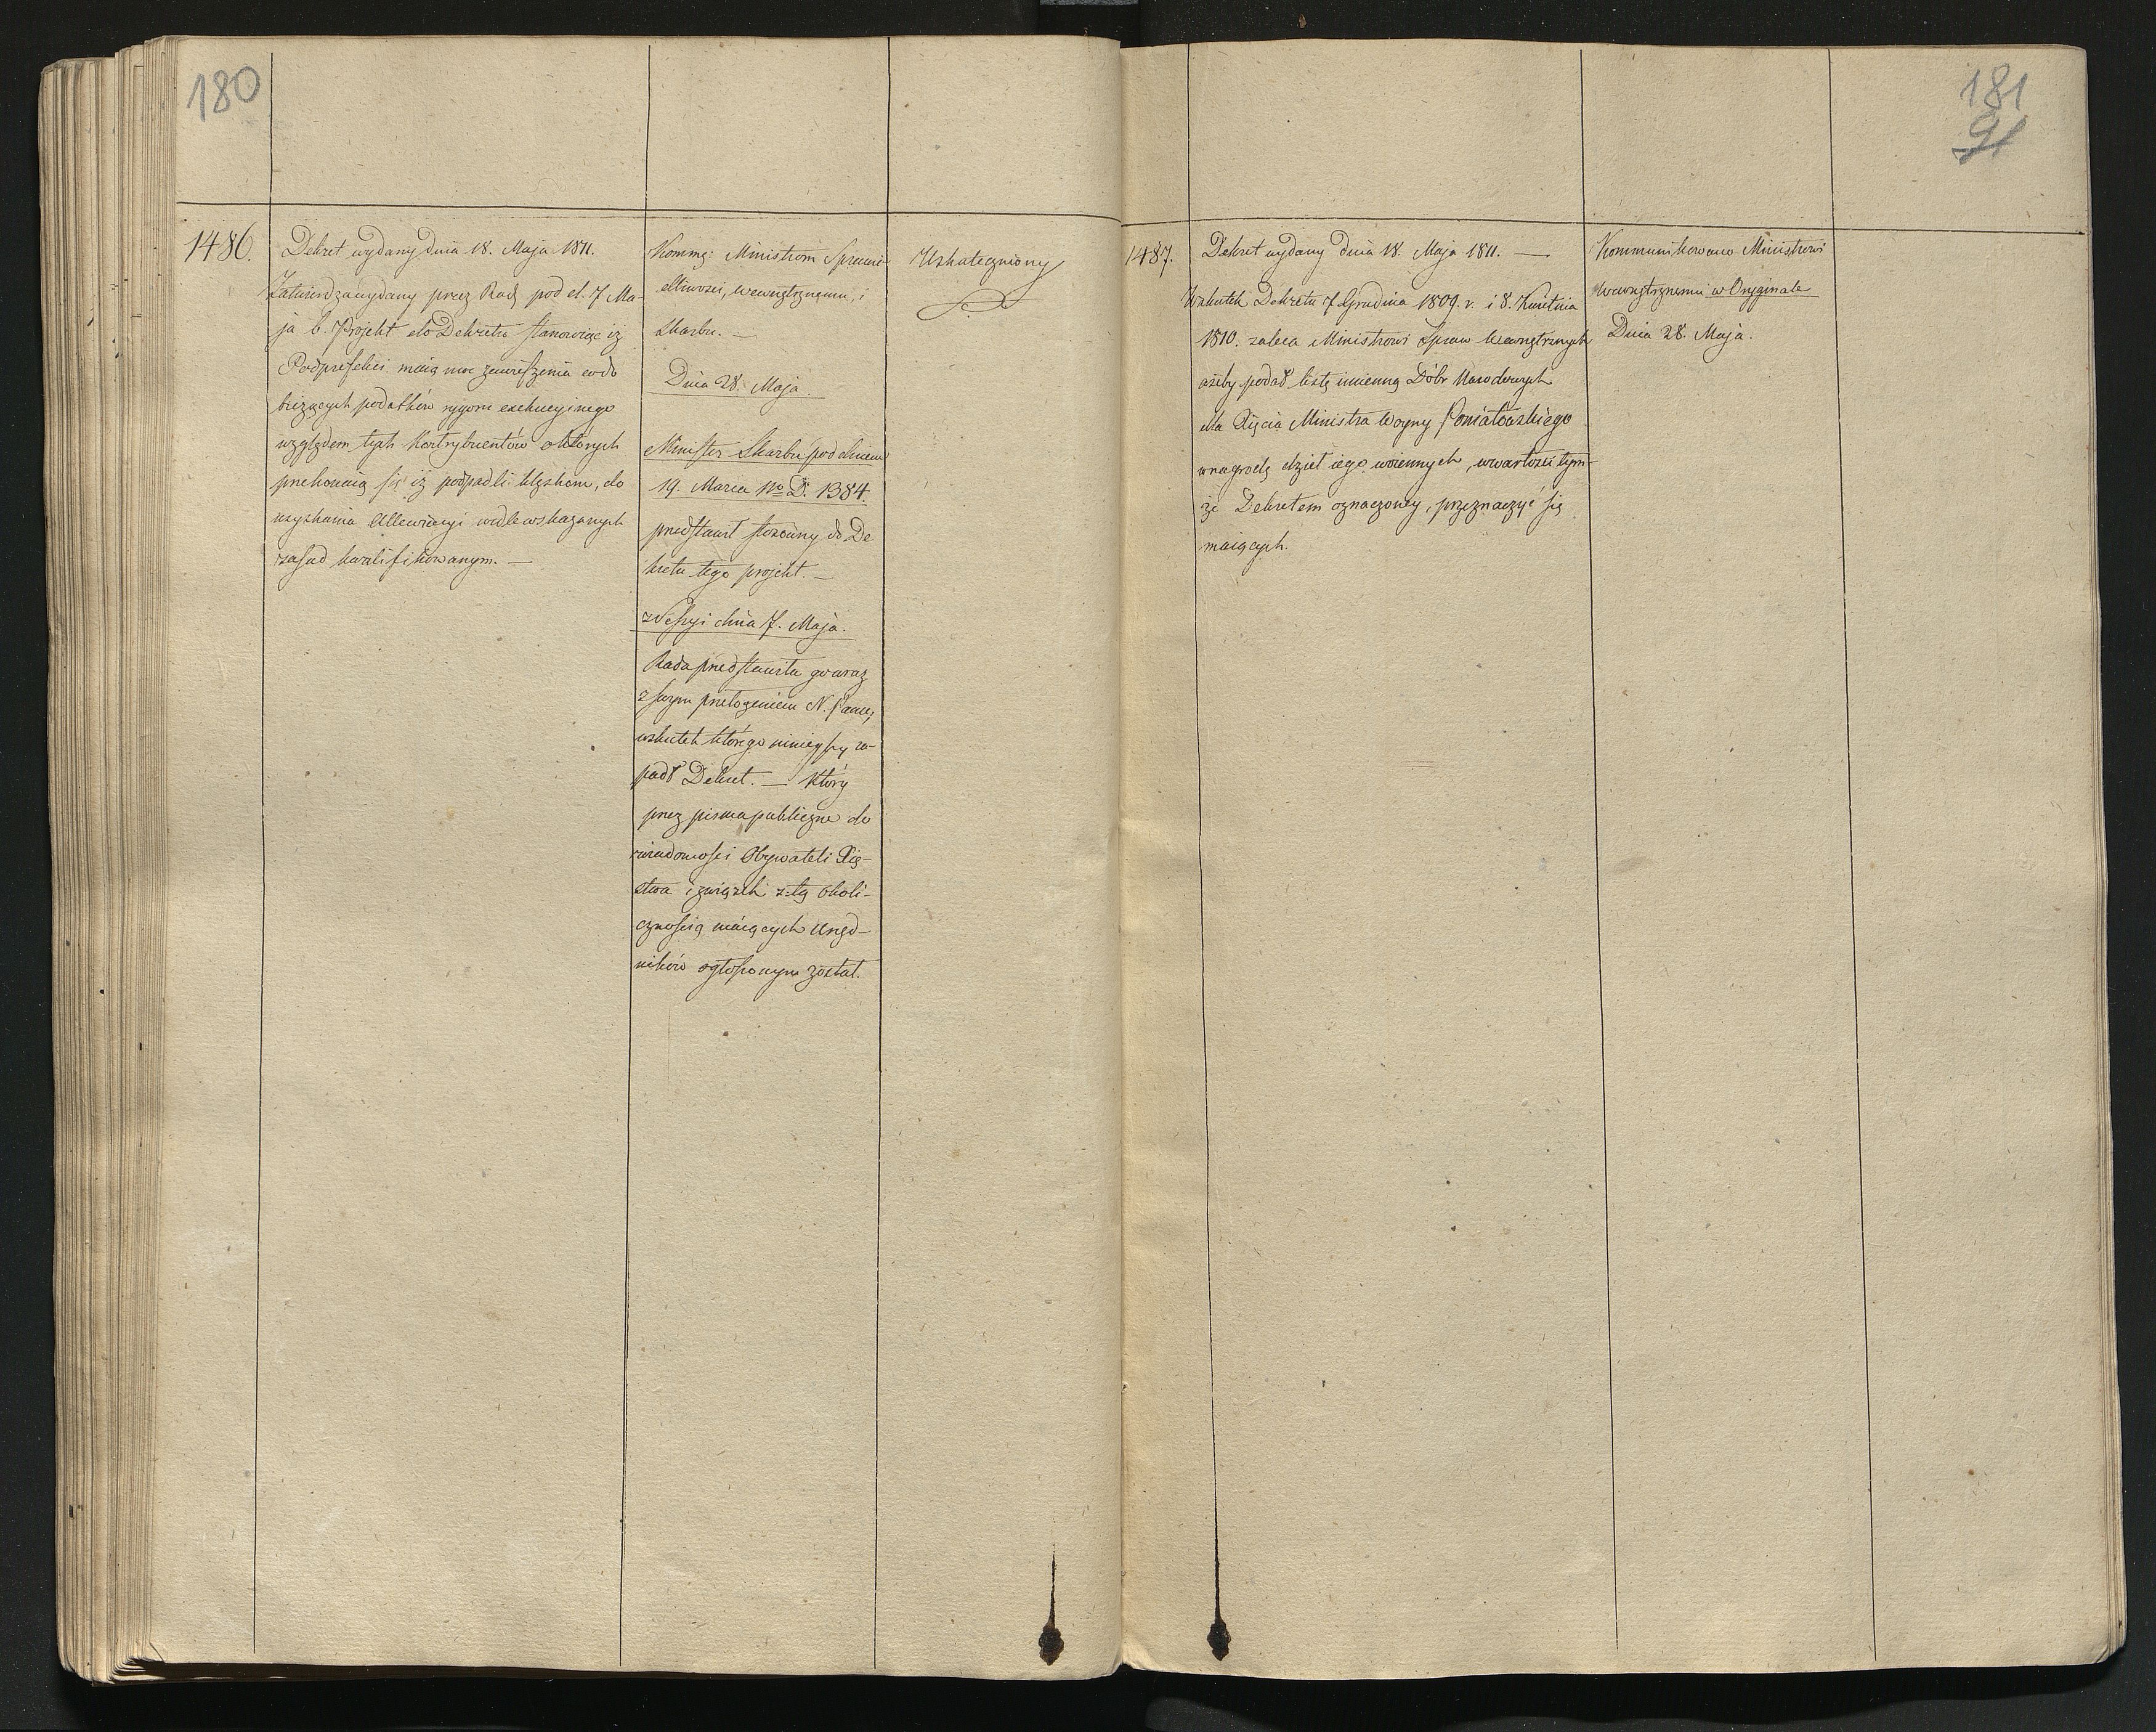 180
1486.
Dekret wydany dnia 18. Maja 1811.
Zatwierdza wydany przez Radę pod d. 7 Ma-
ja b. Projekt do Dekretu stanowiąc iż
Podprefekci maią moc zawieszenia co do
bieżących podatków rygoru exekucyinego
względem tych Kontrybuentów o których
przekonaią się iż podpadli klęskom, do
uzyskania Allewiacyi wedle wskazanych
zasad kwalifikowanym. —
Kommę: Ministrom Sprawie-
dliwości, Wewnętrznemu, i
Skarbu. —
Dnia 28. Maja.
Minister Skarbu pod dniem
19. Marca No D. 1384.
przedstawił stosowny do De
kretu tego projekt. —
z Sessyi dnia 7. Maja.
Rada przedstawiła go wraz
z swym przełożeniem N. Panu,
wskutek którego ninieyszy za-
padł Dekret. — Który
przez pisma publiczne do
wiadomości Obywateli Xię-
stwa i związek z tą okoli-
cznością maiących Urzęd-
ników ogłoszonym został.
Uskuteczniony
181
91
1487.
Dekret wydany dnia 18. Maja 1811. —
Wskutek Dekretu 7 Grudnia 1809. r. i 8. Kwietnia
1810. zaleca Ministrowi Spraw Wewnętrznych
ażeby podał listę imienną Dóbr Narodowych
dla Xięcia Ministra Woyny Poniatowskiego
w nagrodę dzieł iego woiennych, w wartości tym-
że Dekretem oznaczoney, przeznaczyć się
maiących.
Kommunikowano Ministrowi
Wewnętrznemu w Oryginale
Dnia 28. Maja.